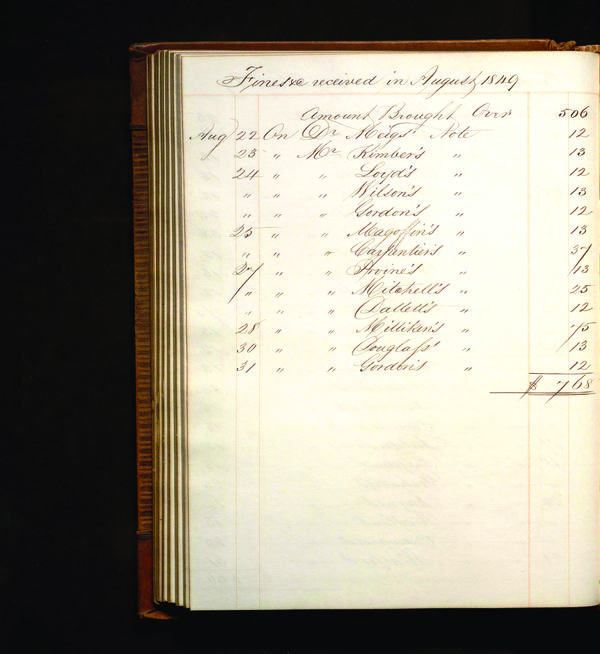 Fines &c received in August, 1849
Amount Brought Over 506
Aug 22 On Dr Meigs' Note 12
23 〃 Mr Kimber's 〃 13
24 〃 〃 Loyd's 〃 12
〃 〃 〃 Wilson's 〃 13
〃 〃 〃 Gordon's 〃 12
25 〃 〃 Magoffin's 〃 13
〃 〃 〃 Carpentier's 〃 37
27 〃 〃 Irvine's 〃 13
〃 〃 〃 Mitchell's 〃 25
〃 〃 〃 Dallett's 〃 12
28 〃 〃 Milliken's 〃 75
30 〃 〃 Douglass' 〃 13
31 〃 〃 Gordon's 〃 12
$ 768